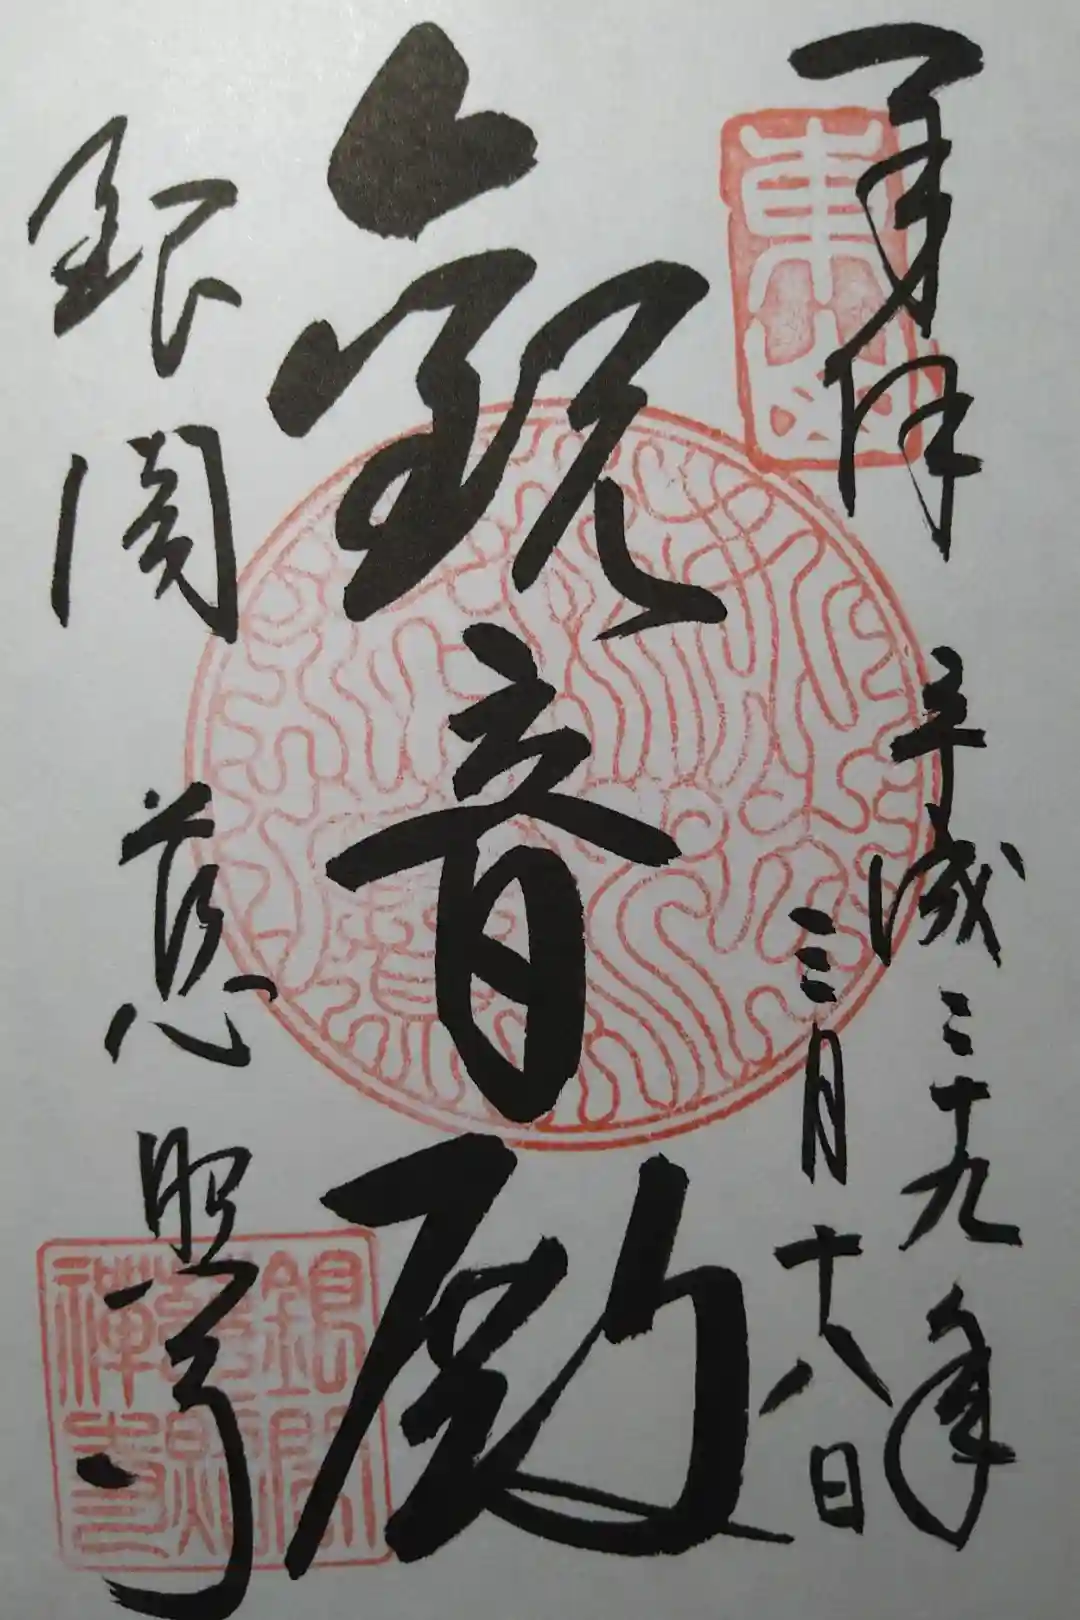 奉拝
東山
平成二十九年
三月十八日
観音殿
銀閣
慈照寺
銀閣
慈照
禅寺